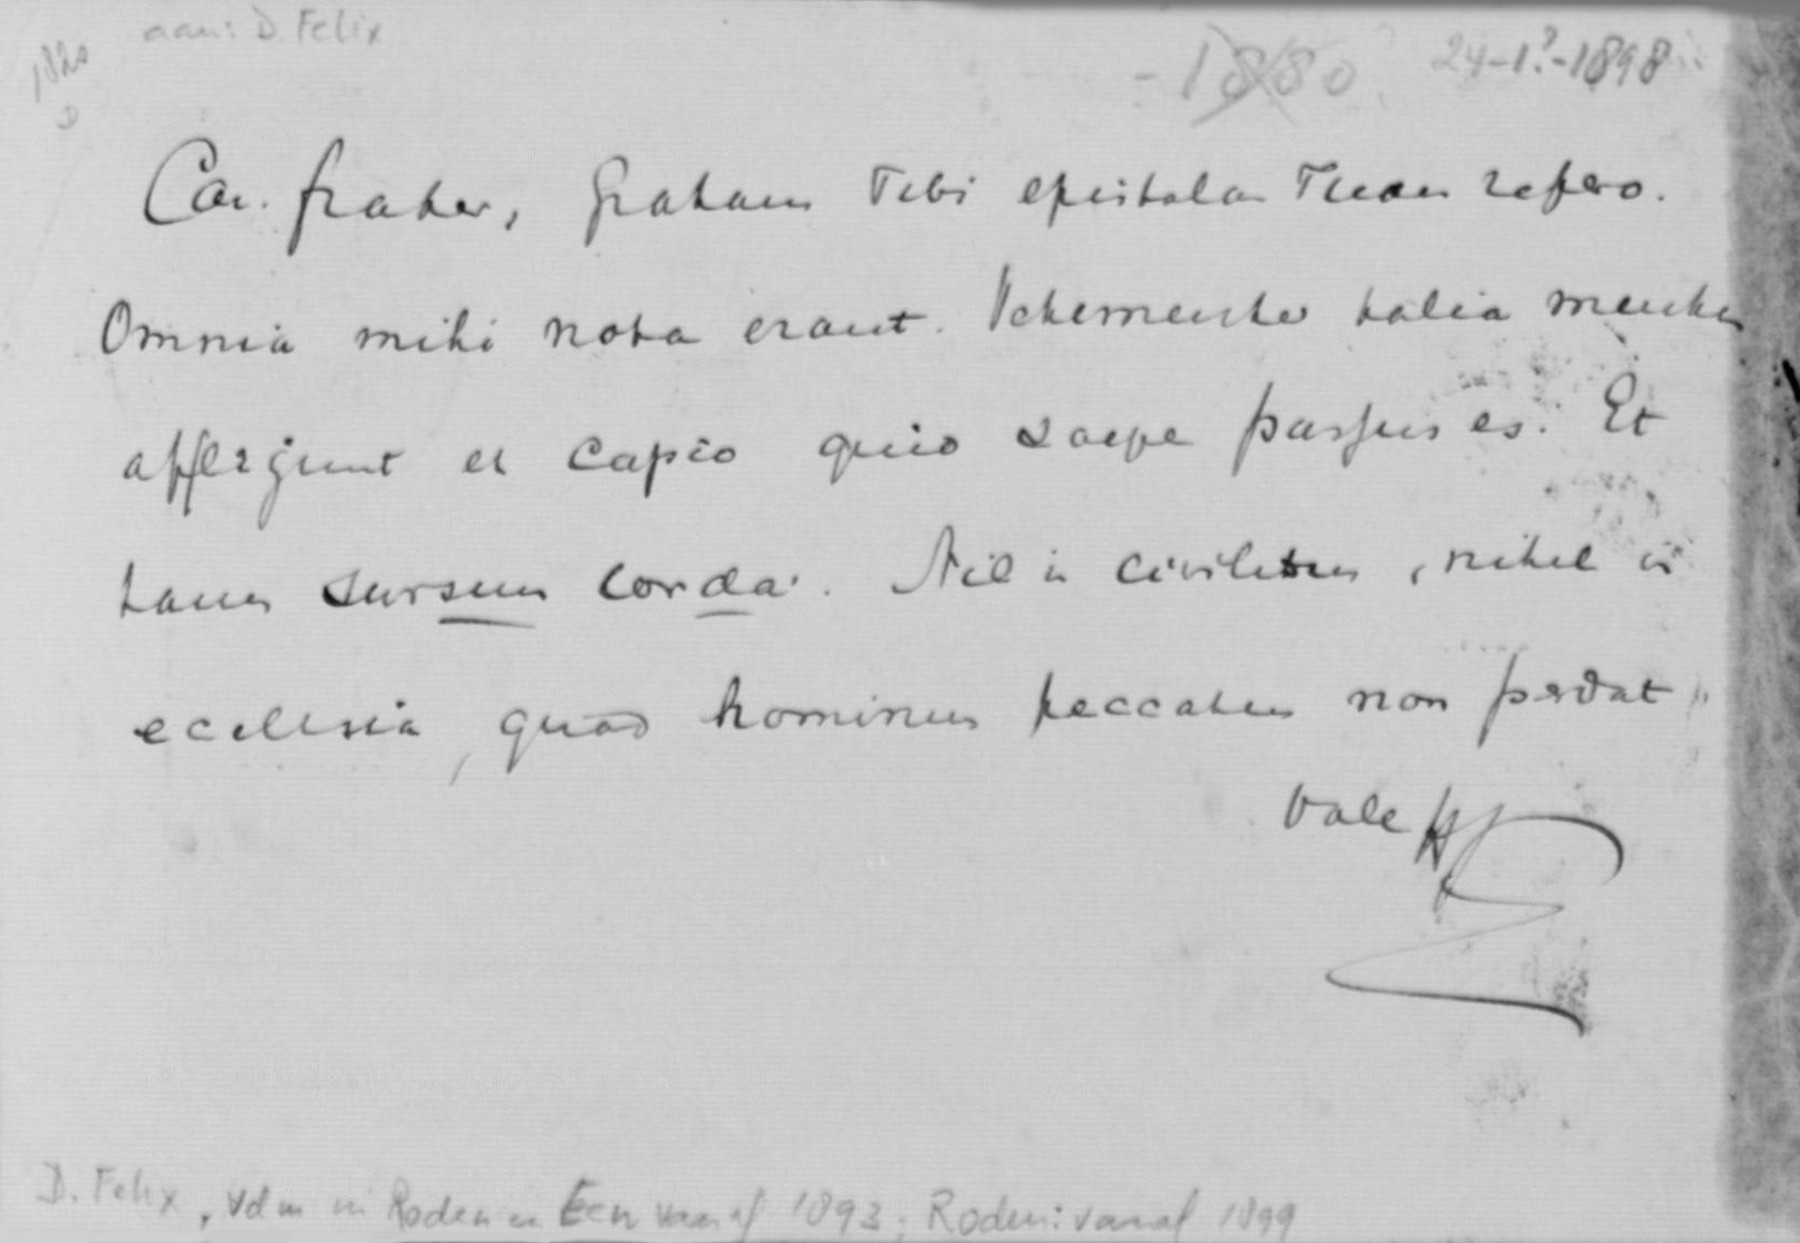 aan: D. Felix
1820
D
-1880? 24-1?-1898
Car. frater, gratam Tibi epistolam Tuam refero.
Omnia mihi nota erant. Vehementer talia mentem
affligunt et capio quid saepe passus es. Et
tamen sursum corda. Nil in civitatem, nihil in
ecclesia, quod hominum peccatum non perdat
Vale
D. Felix, vdm in Roden en Een vanaf 1893; Roden: vanaf 1899